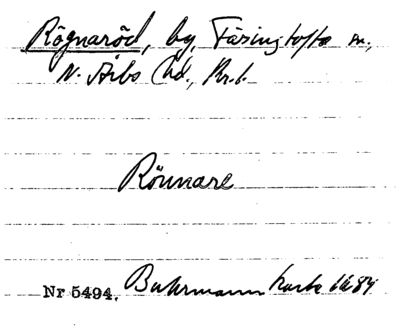 Rögnaröd, by, Färingtofta sn.,
N. Åsbo hd., Kr. l.
Rönnare
Nr 5494. Buhrmann karta 1684